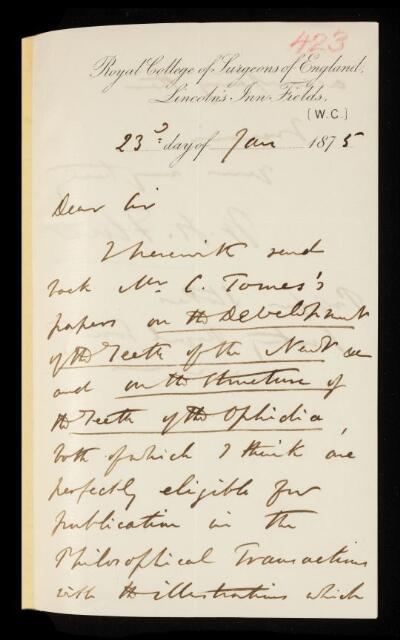 423
Royal College of Surgeons of England,
Lincoln's Inn Fields,
(W.C.)
23d day of Jan 1875
Dear Sir
I herewith send
back Mr C. Tomes's
papers on the Development
of the Teeth of the Newt &c
and on the structure of
the Teeth of the Ophidia,
both of which I think are
perfectly eligible for
publication in the
Philosophical Transactions
with the illustrations which